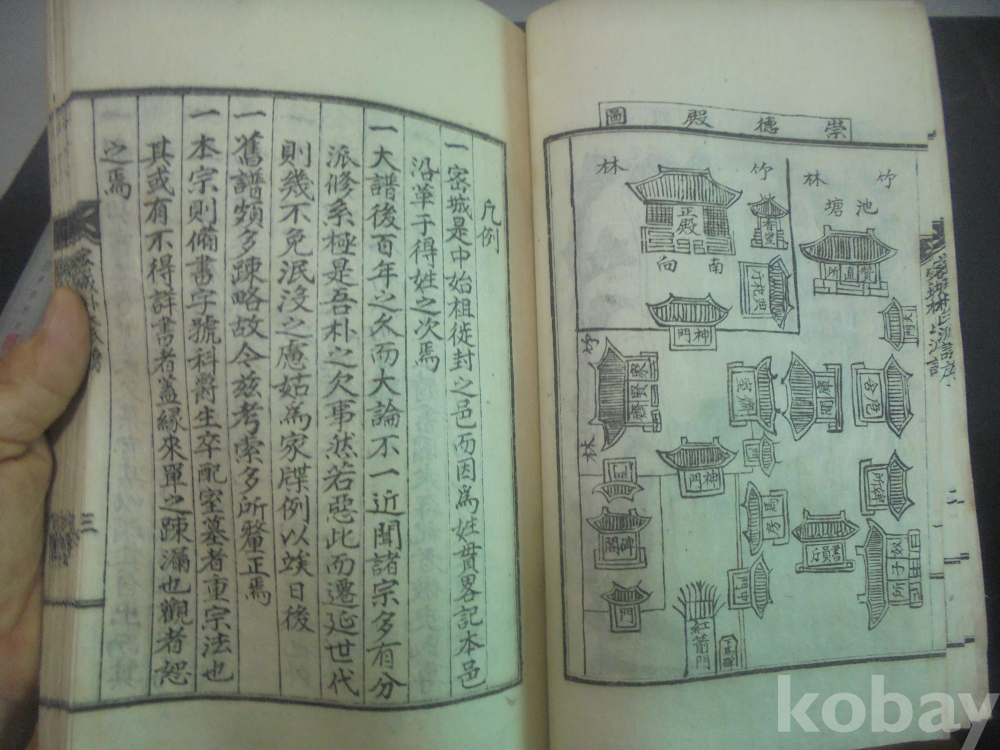 崇德殿圖
竹林
池塘
贊直所
竹林
正殿
南向
香室
神門
竹林
神門
碑閣
門
紅箭門
書員斤
凡例
一密城是中始祖徙封之邑而因爲姓貫畧記本邑
沿革于得姓之次焉
一大譜後百年之久而大論不一近聞諸宗多有分
派修系極是吾朴之欠事然若惡此而遷延世代
則幾不免泯沒之慮姑爲家牒例以竢日後
一舊譜頗多踈略故今玆考索多所釐正焉
一本宗則備書字號科爵生卒配室墓者重宗法也
其或有不得詳書者盖緣來單之踈漏也觀者恕
之焉
二
三
kobay